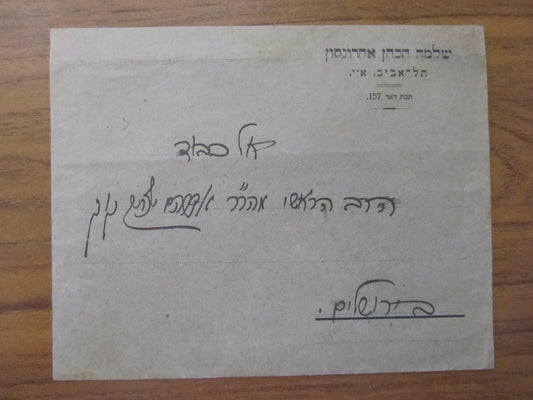 שלמה הכהן אהרונסון
תל־אביב, א״י.
תבת דאר 157.
אל כבוד
הרב הראשי מהר״ר אברהם יצחק קוק
בירושלים.